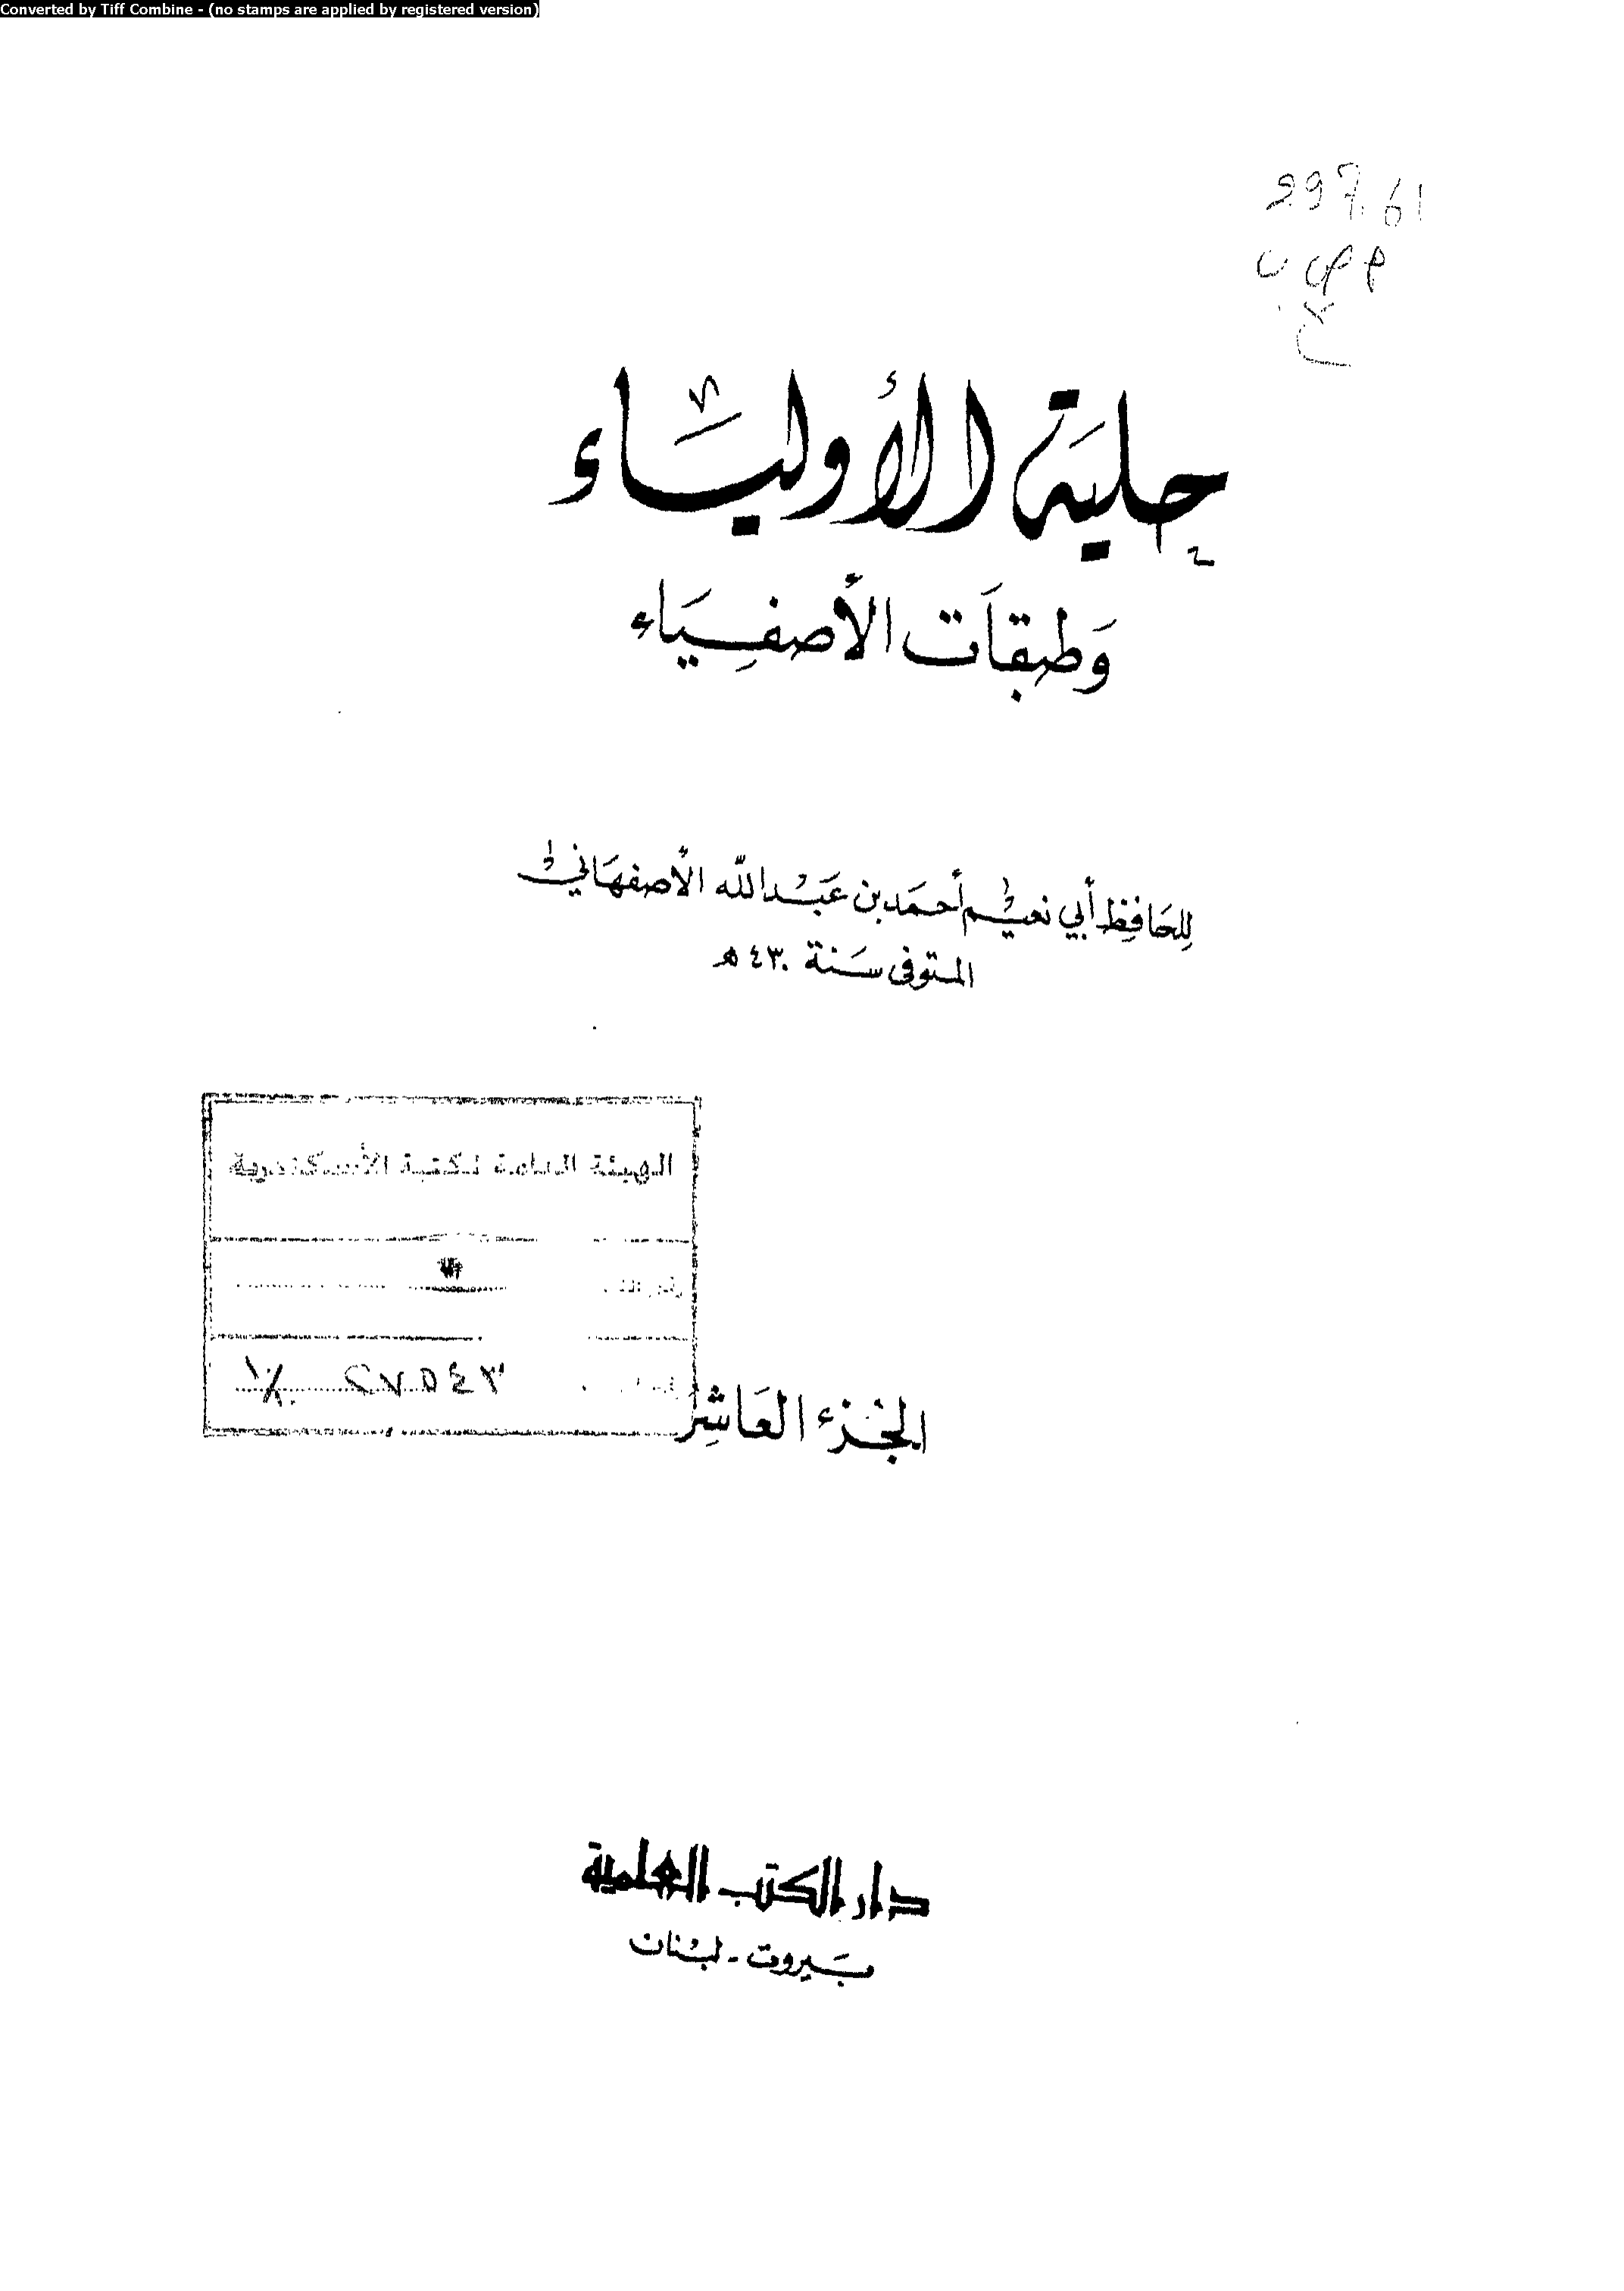 Converted by Tiff Combine - (no stamps are applied by registered version)
297.61
حِليَة الأولياَء
وَطبقاَت الأصفِيَاء
لِلحَافِظ أبي نعيْم أحمَد بن عَبْد الله الأصفهَانيْ
المتوفى سَنة ٤٣٠ هـ
الهيئة العامة لمكتبة الأسكندرية
٢٧٥٤٣
الجُزء العَاشِر
دار الكتب العلمية
بَيروت - لبْنان